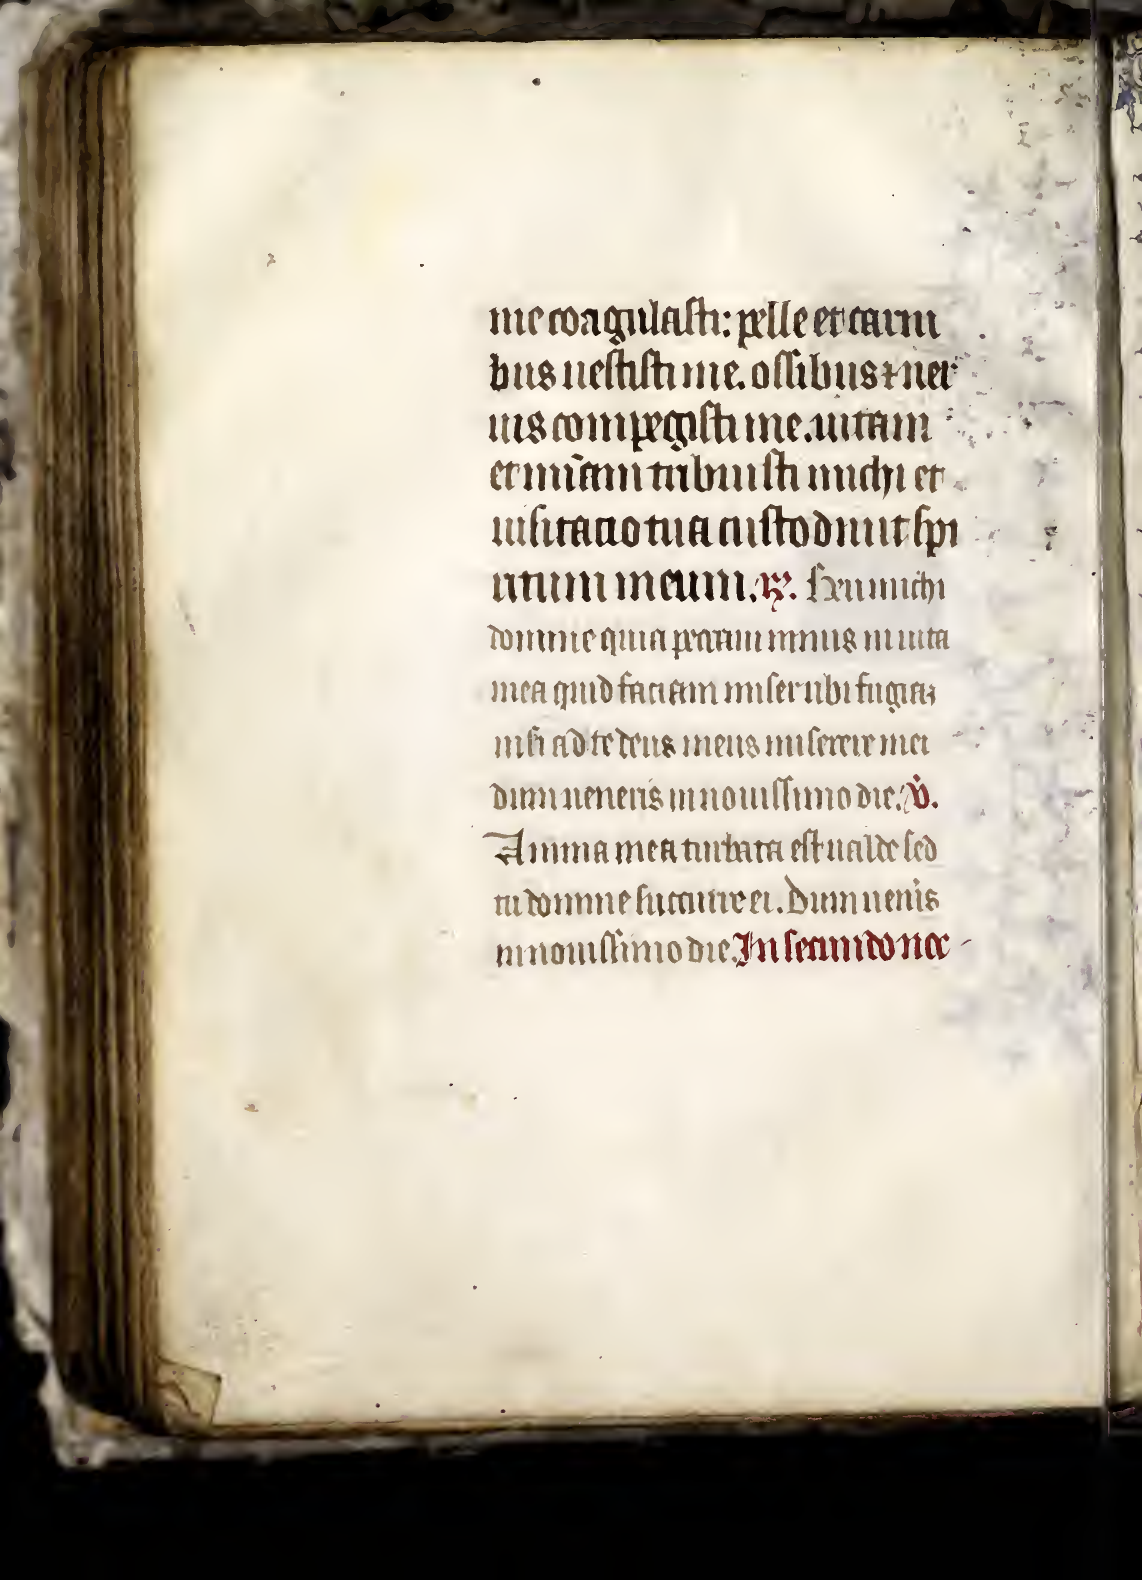 me coagulasti: pelle et carni
bus uestisti me. ossibus ⁊ ner
uis compegisti me. uitam
et mīam tribuisti michi et
uisitatio tua custodiuit spi
ritum meum. ℟. Heu michi
domine quia peccaui nimis in uita
mea quid faciam miser ubi fugiaꝫ
nisi ad te deus meus miserere mei
dum ueneris in nouissimo die. ℣.
Anima mea turbata est ualde sed
tu domine succurre ei. Dum uenis
in nouissimo die. In secundo noc